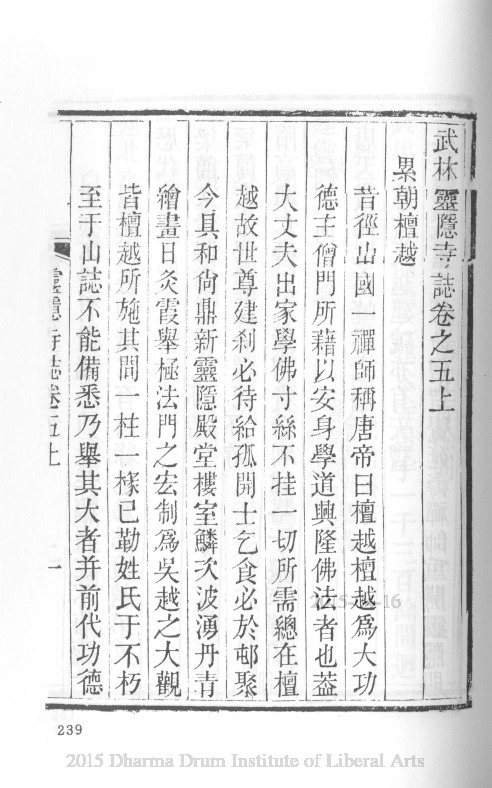 武林靈隱寺誌卷之五上
累朝檀越
昔徑山國一禪師稱唐帝曰檀越檀越爲大功
德主僧門所藉以安身學道興隆佛法者也葢
大丈夫出家學佛寸絲不挂一切所需總在檀
越故世尊建刹必待給孤開士乞食必於邨聚
今具和尙鼎新靈隱殿堂樓室鱗次波湧丹青
繪畫日炙霞舉極法門之宏制爲吳越之大觀
皆檀越所施其間一柱一椽已勒姓氏于不朽
至于山誌不能備悉乃舉其大者并前代功德
靈隱寺誌卷五上
一
239
2015 Dharma Drum Institute of Liberal Arts